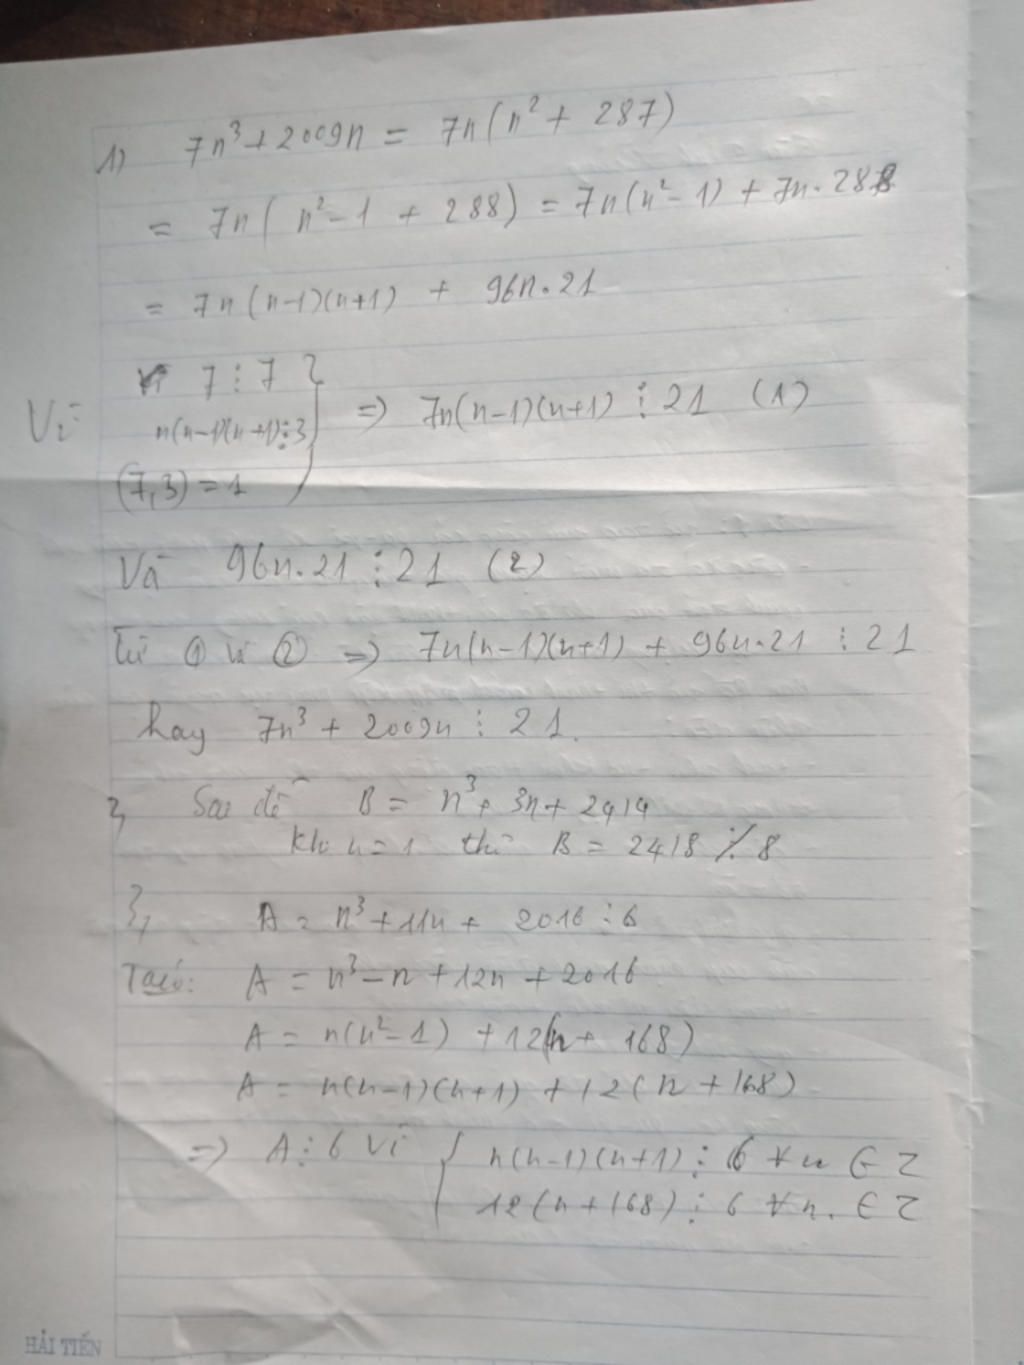 1) 7n³ + 2009n = 7n(n² + 287)
= 7n( n² - 1 + 288) = 7n(n² - 1) + 7n.288
= 7n(n-1)(n+1) + 96n.21
Vì 7 ⋮ 7
n(n-1)(n+1) ⋮ 3 } => 7n(n-1)(n+1) ⋮ 21 (1)
(7,3) = 1
Và 96n.21 ⋮ 21 (2)
Từ ① và ② => 7n(n-1)(n+1) + 96n.21 ⋮ 21
hay 7n³ + 2009n ⋮ 21.
2, Sai đề B = n³ + 3n + 2414
Khi n = 1 thì B = 2418 ⋮̸ 8
3, A = n³ + 11n + 2016 ⋮ 6
Ta có: A = n³ - n + 12n + 2016
A = n(n² - 1) + 12(n + 168)
A = n(n-1)(n+1) + 12(n + 168)
=> A ⋮ 6 vì { n(n-1)(n+1) ⋮ 6 ∀ n ∈ Z
12(n + 168) ⋮ 6 ∀ n. ∈ Z
HẢI TIẾN